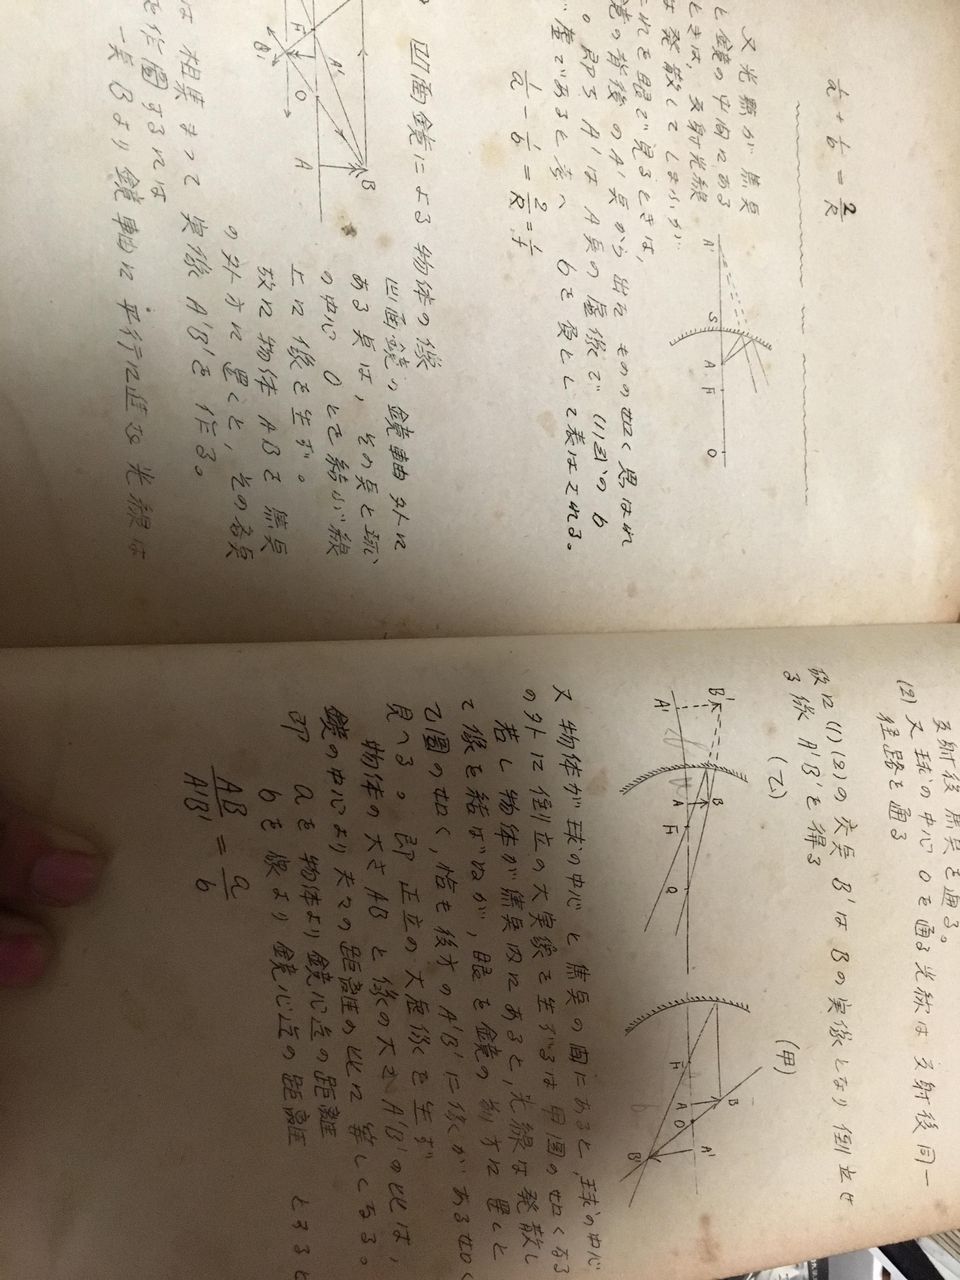 1/a + 1/b = 2/R
又光點が焦点
と鏡の中間にある
ときは、反射光線
は発散してしまふが
これを眼で見るときは、
鏡の背後のA'点から出たものの如く思はれ
。即ちA'はA点の虚像で(1)式のb
であると考へ bを負として表はされる。
1/a - 1/b = 2/R = 1/f
A' S A F O
凹面鏡による物体の像
凹面鏡の鏡軸外に
ある点は、その点と球
の中心Oとを結ぶ線
上に像を生ず。
故に物体ABを焦点
の外方に置くと、その各点
は相集まつて実像A'B'を作る。
を作圖すれば
一点Bより鏡軸に平行に進む光線は
F O A B A' B'
反射後焦点を通る。
(2) 又球の中心Oを通る光線は反射後同一
径路を通る
故に(1)(2)の交点B'はBの実像となり倒立せ
る像A'B'を得る
(乙)
(甲)
B' A' B A F O
F A O B A' B'
又物体が球の中心と焦点の間にあると、球の中心
の外に倒立の大実像を生ずるは甲圖の如くなる
若し物体が焦点内にあると、光線は発散し
て像を結ばぬが、眼を鏡の前方に置くと
乙圖の如く、恰も後方のA'B'に像がある如く
見へる。即正立の大虚像を生ず
物体の大さABと像の大さA'B'の比は、
鏡の中心より夫々の距離の比に等しくなる。
即 aを物体より鏡心迄の距離
bを像より鏡心迄の距離 とすると
AB/A'B' = a/b